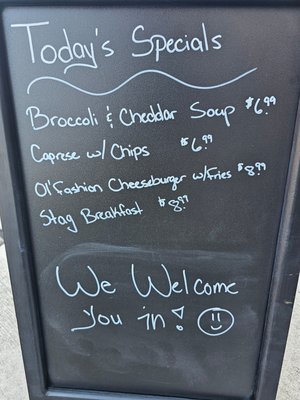 Today's Specials
Broccoli & Cheddar Soup $6.99
Caprese w/ Chips $6.99
Ol' Fashion Cheeseburger w/Fries $8.99
Stag Breakfast $8.99
We Welcome
you in!